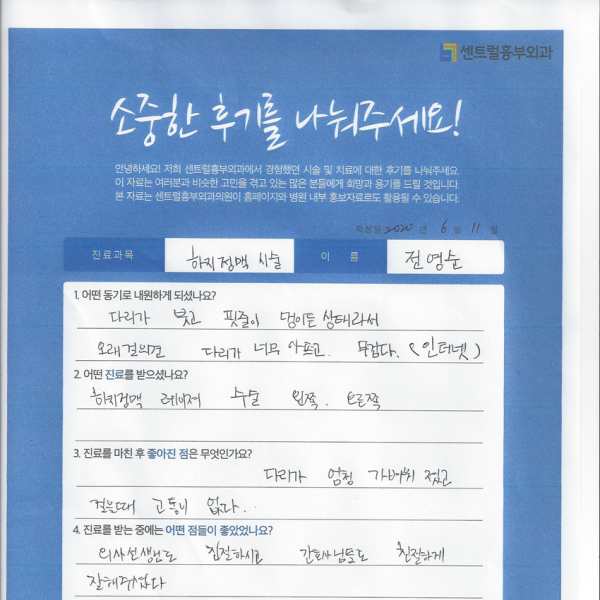 센트럴흉부외과
소중한 후기를 나눠주세요!
안녕하세요! 저희 센트럴흉부외과에서 경험했던 시술 및 치료에 대한 후기를 나눠주세요.
이 자료는 여러분과 비슷한 고민을 겪고 있는 많은 분들에게 희망과 용기를 드릴 것입니다.
본 자료는 센트럴흉부외과의원이 홈페이지와 병원 내부 홍보자료로도 활용될 수 있습니다.
작성일 2020 년 6 월 11 일
진료과목 하지정맥 시술 이 름 전영순
1. 어떤 동기로 내원하게 되셨나요?
다리가 붓고 핏줄이 덩이든 상태라서
오래걸으면 다리가 너무 아프고. 무겁다. (인터넷)
2. 어떤 진료를 받으셨나요?
하지정맥 레이저 수술 왼쪽. 오른쪽
3. 진료를 마친 후 좋아진 점은 무엇인가요?
다리가 엄청 가벼워 졌고
걸을때 고통이 없다..
4. 진료를 받는 중에는 어떤 점들이 좋았었나요?
의사선생님도 친절하시고 간호사님들도 친절하게
잘해주셨다